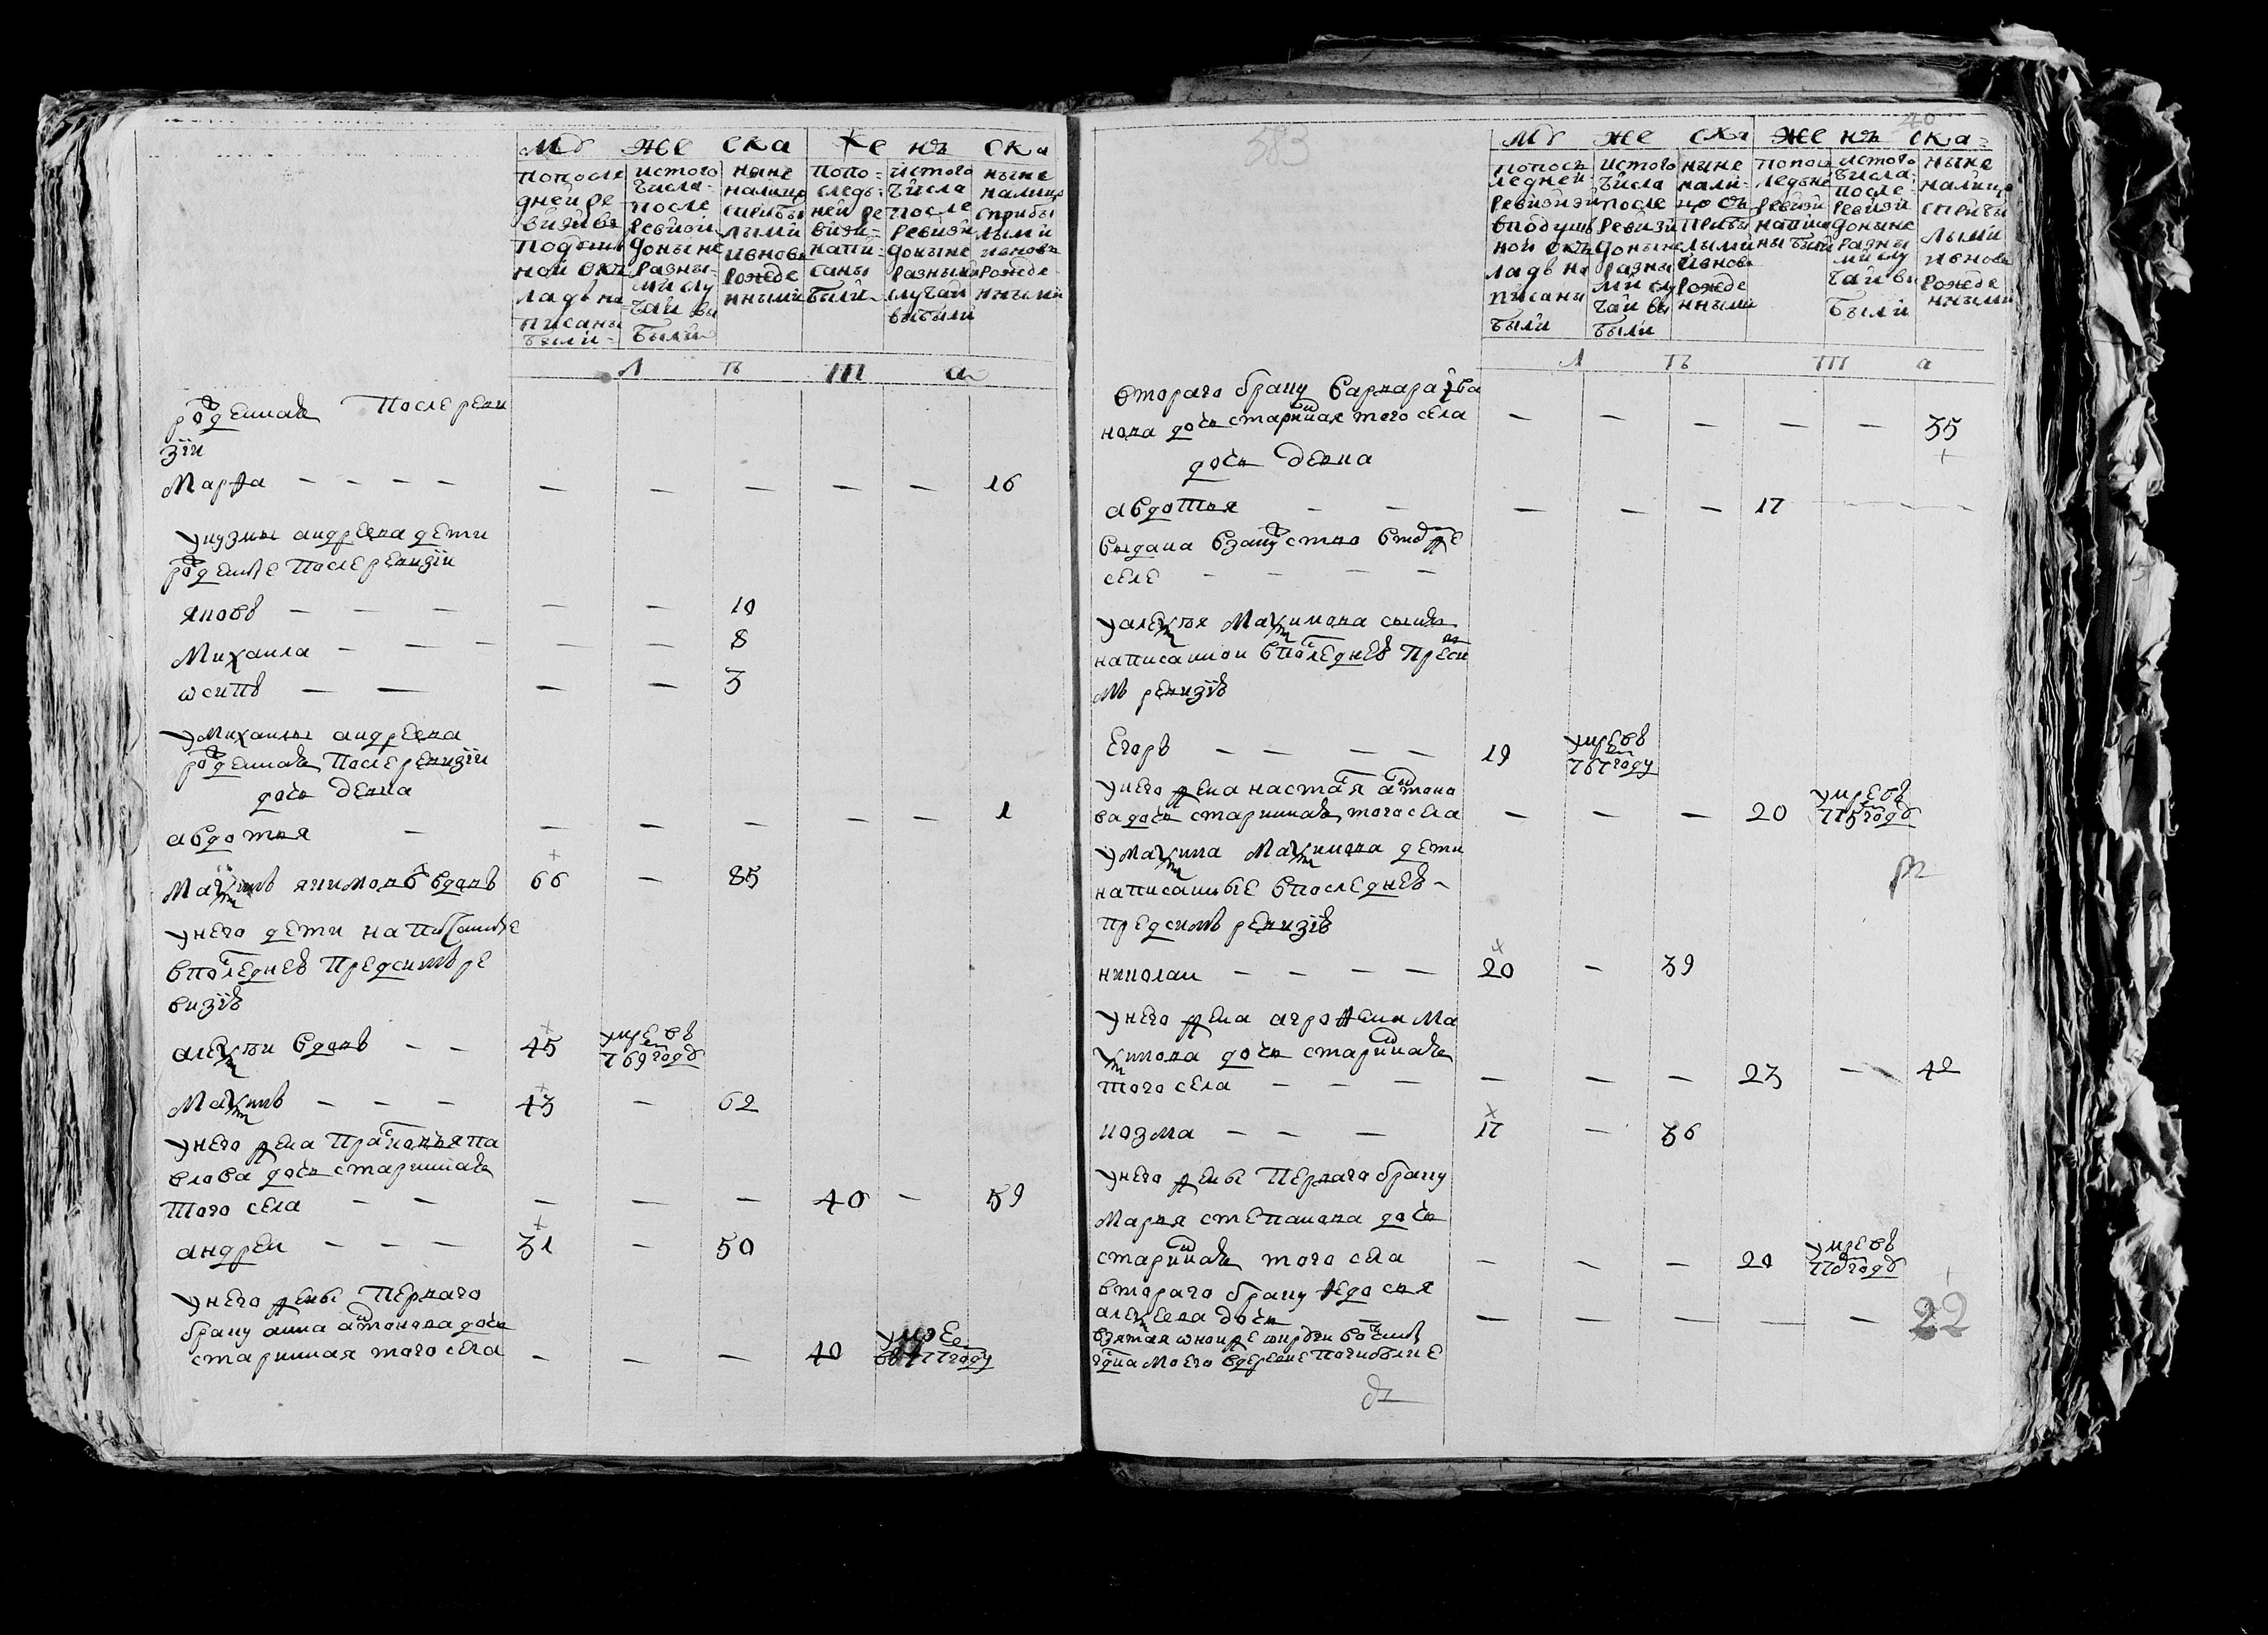 Мȣ же ска Же нъ ска
попосле дней ре визии въ подушн ной окъ ладъ на писаны были
истого числа после ревизии доныне разны ми слу чаи вы были
ныне налицо сприбы лыми ивновь рожде нными
попо следъ ней ре визии напи саны были
истого числа после ревизии доныне разными случаи выбыли
ныне налицо сприбы лыми ивновь рожде нными
Л ѣ т а
рожденная После реви
зіи
Марѳа — — — — — — — — — 16
укузмы андреева дети
рожденые После ревизіи
яковъ — — — — — 10
Михаила — — — — — 8
ѡсипъ — — — — 3
уМихаилы андреева
рожденная После ревизіи
дочь девка
авдотья — — — — — — 1
Маѯимъ якимовъ вдовъ 66 — 85
унего дети написанные
впоследнеѣ Предсимъ ре
визіѣ
алеѯѣи вдовъ — — 45 умре въ 769 годȣ
Маѯимъ — — — 43 — 62
унего жена Прасковья па
влова дочь старинная
того села — — — — — 40 — 59
андреи — — — 31 — 50
унего жены Перваго
браку анна антонова дочь
старинная того села — — — 40 умре въ 177 году
583
40
Мȣ же ска Же нъ ска
попосъ ледней ревизии вподуш ной окъ ладъ на писаны были
истого числа после ревизи доныне разны ми слу чаи вы были
ныне нали цо съ прибы лыми ивновь рожде нными
попос ледъне ревизи написа ны были
истого числа после ревизи доныне разны ми слу чаи вы были
ныне налицо сприбы лыми ивновь рожде нными
Л ѣ т а
втораго браку варвара ива
нова дочь старинная того села — — — — — 35
дочь девка
авдотья — — — — — 17 — — —
выдана взамуство втȣже
селе — — — —
уалеѯѣя Маѯимова сынъ
написаннои впоследнеѣ Предси
мъ ревизіѣ
Егоръ — — — — 19 умре въ 767 году
унего жена настася антоно
ва дочь старинная того села — — — 20 умре въ 775 годȣ
уМаѯима Маѯимова дети
написанные впоследнеѣ —
предсимъ ревизіѣ
николаи — — — — 20 — 39
унего жена агроѳена Ма
ѯимова дочь старинная
того села — — — — — — 23 — 42
козма — — — 17 — 36
унего жены Перваго браку
Марья степанова дочь
старинная того села — — — 20 умре въ 770 годȣ
втораго браку ѳедосья
алеѯеева дочь — — — — — 22